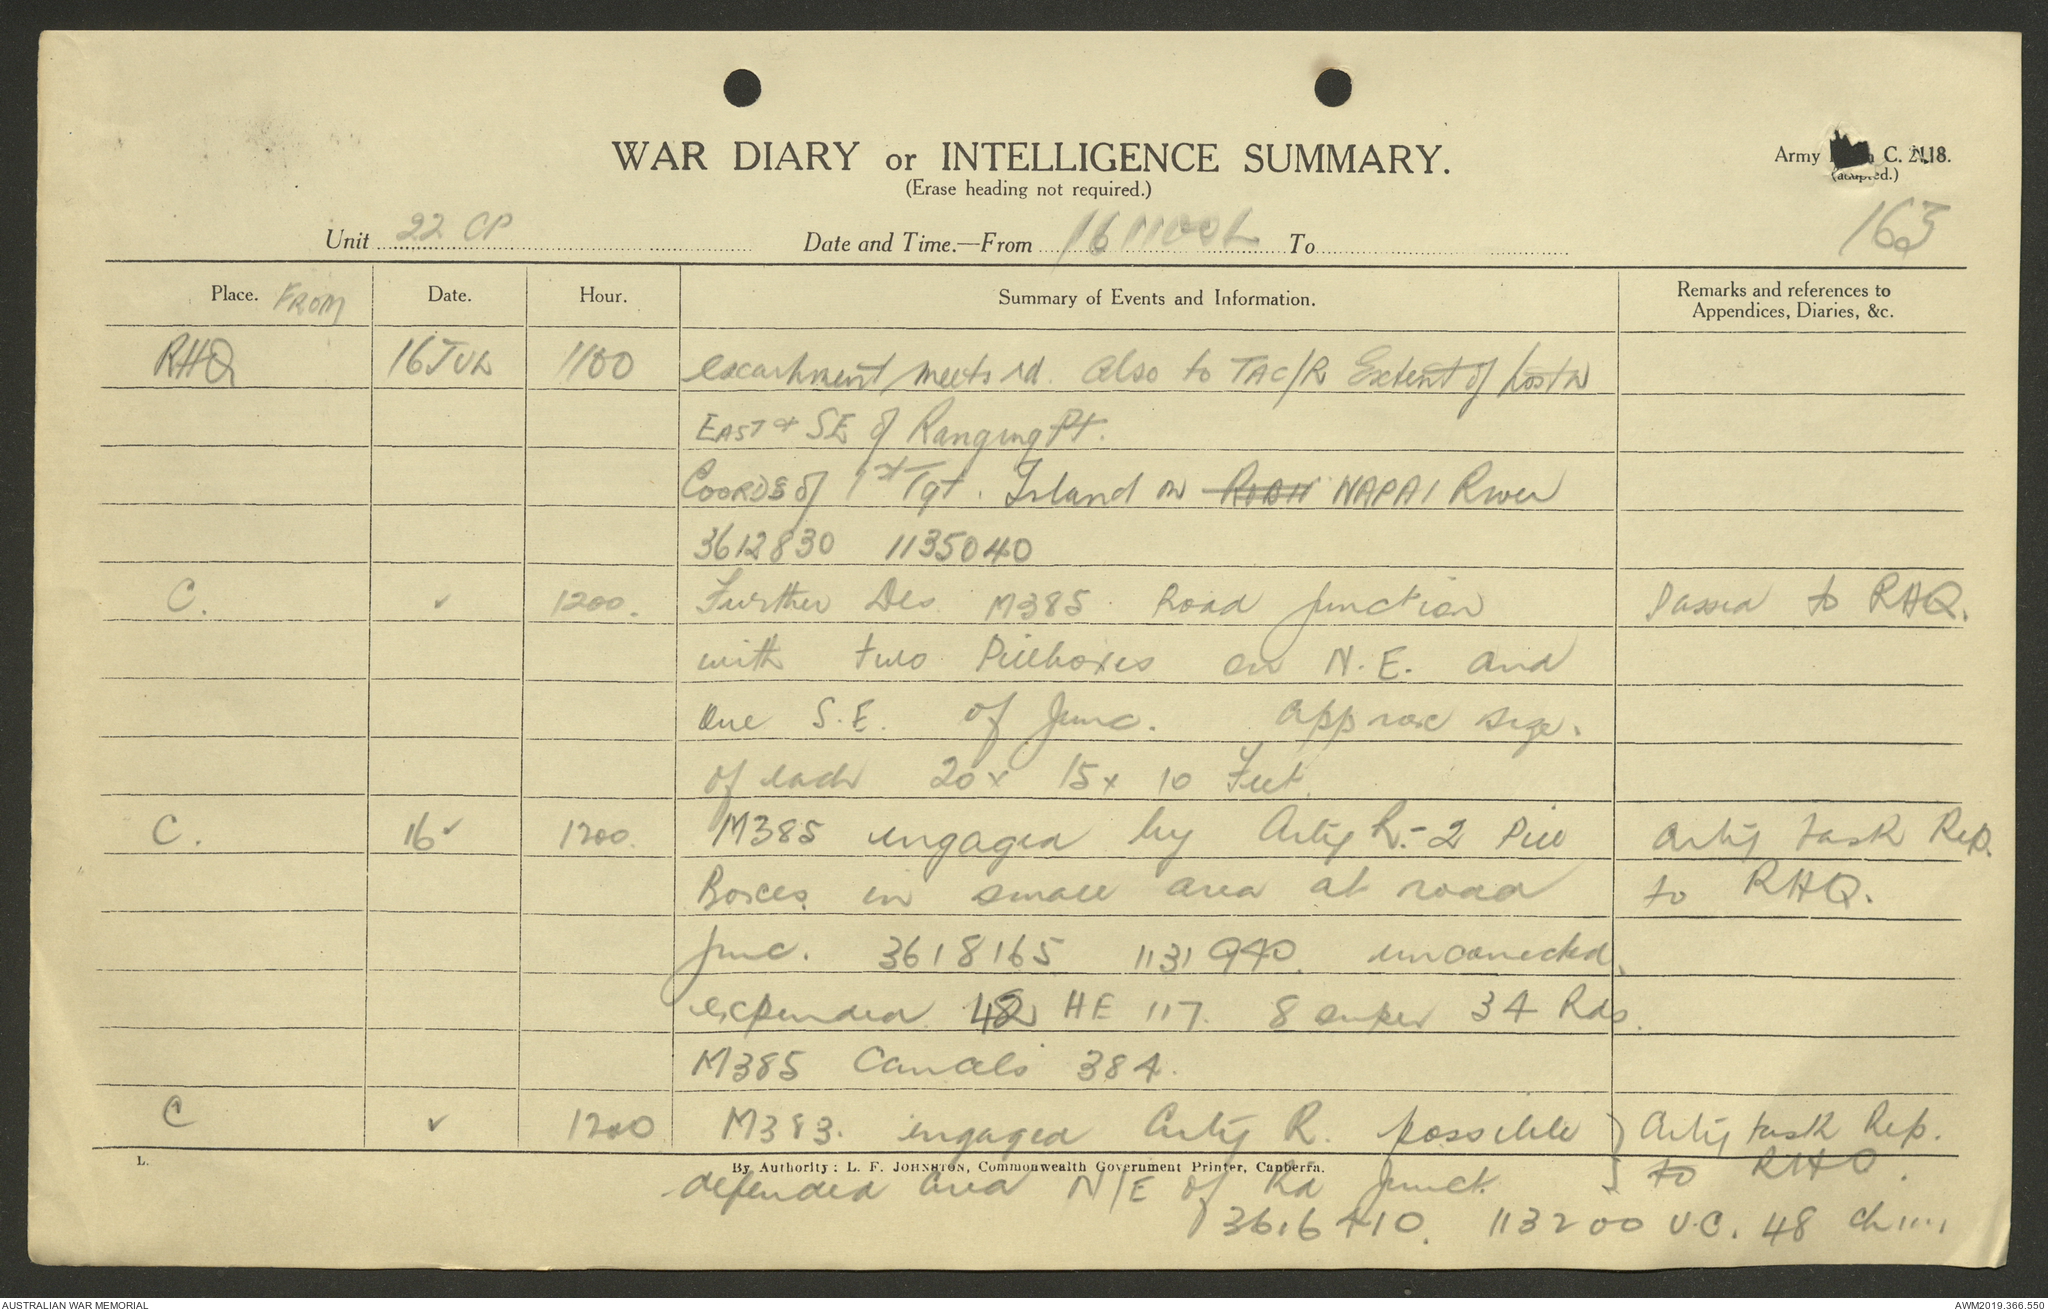 WAR DIARY or INTELLIGENCE SUMMARY.
(Erase heading not required.)
Army C. 2118.
(adapted.)
163
Unit 22 CP Date and Time.—From 161100L To
Place. FROM Date. Hour. Summary of Events and Information. Remarks and references to Appendices, Diaries, &c.
RHQ 16 JUL 1100 escarpment meets rd. Also to TAC/R Extent of
EAST & SE of Ranging Pt.
COORDS of 1st Tgt. Island in NAPAI River
3612830 1135040
C. ✓ 1200. Further Des M385 Road junction Passed to RHQ.
with two Pillboxes on N.E. and
one S.E. of Junc. approx size.
of each 20 x 15 x 10 Feet.
C. 16 ✓ 1200. M385 engaged by Arty R. - 2 Pill Arty task Rep.
Boxes in small area at road to RHQ.
junc. 3618165 1131940. uncorrected.
expended 48 HE 117. 8 super 34 Rds.
M385 Cancels 384.
C ✓ 1200 M383. engaged Arty R. possible } Arty task Rep.
L. By Authority: L. F. JOHNSTON, Commonwealth Government Printer, Canberra.
defended area N/E of Rd Junct. } to RHQ.
3616410. 113200 U.C. 48
AUSTRALIAN WAR MEMORIAL AWM2019.366.550